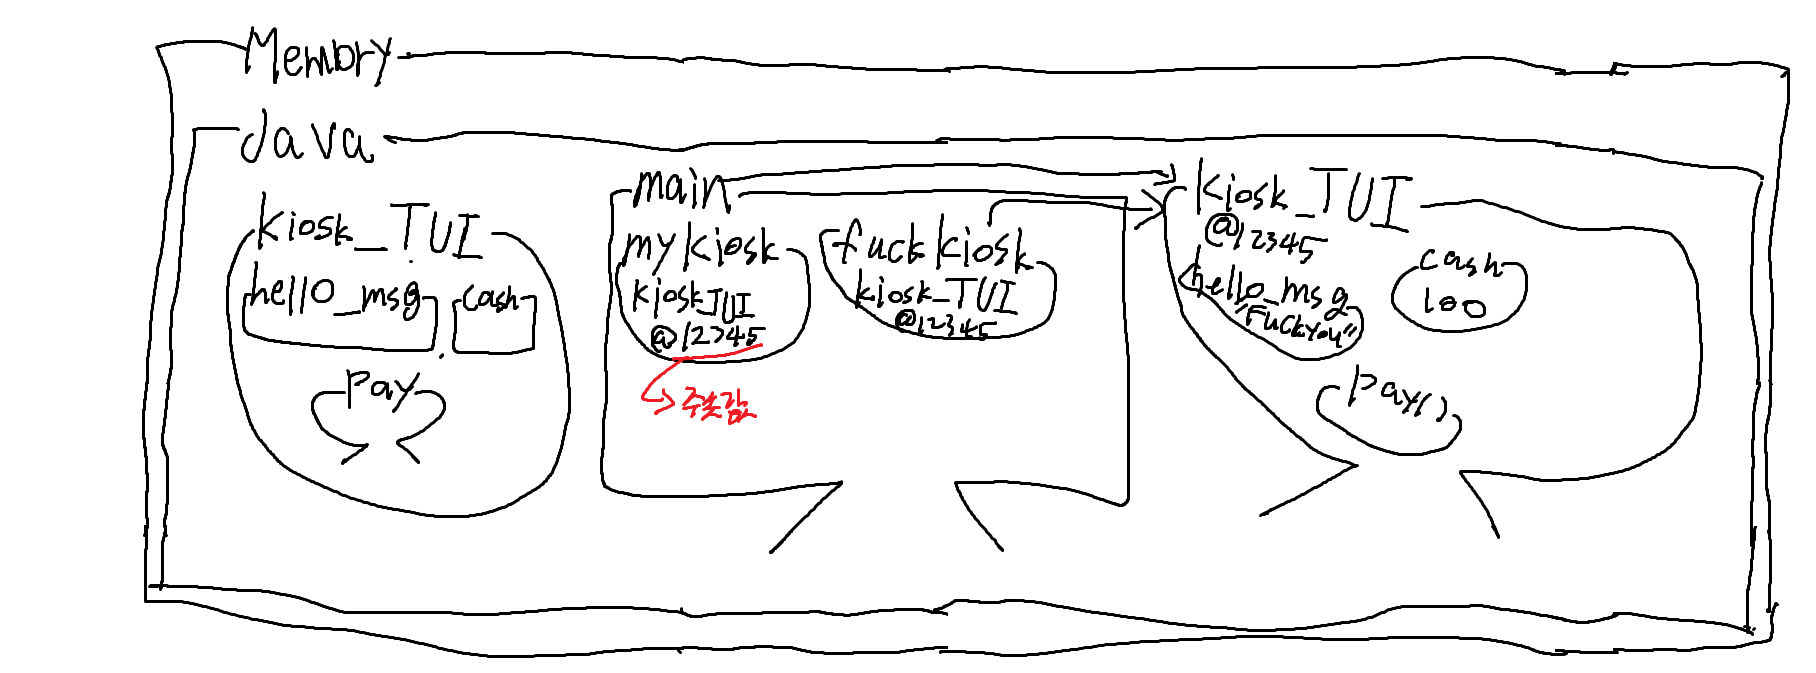 Memory
Java
kiosk_TUI
hello_msg
cash
pay
main
my kiosk
kiosk_TUI
@12345
주솟값
fuck kiosk
kiosk_TUI
@12345
kiosk_TUI
@12345
hello_msg
"Fuckyou"
cash
100
pay()